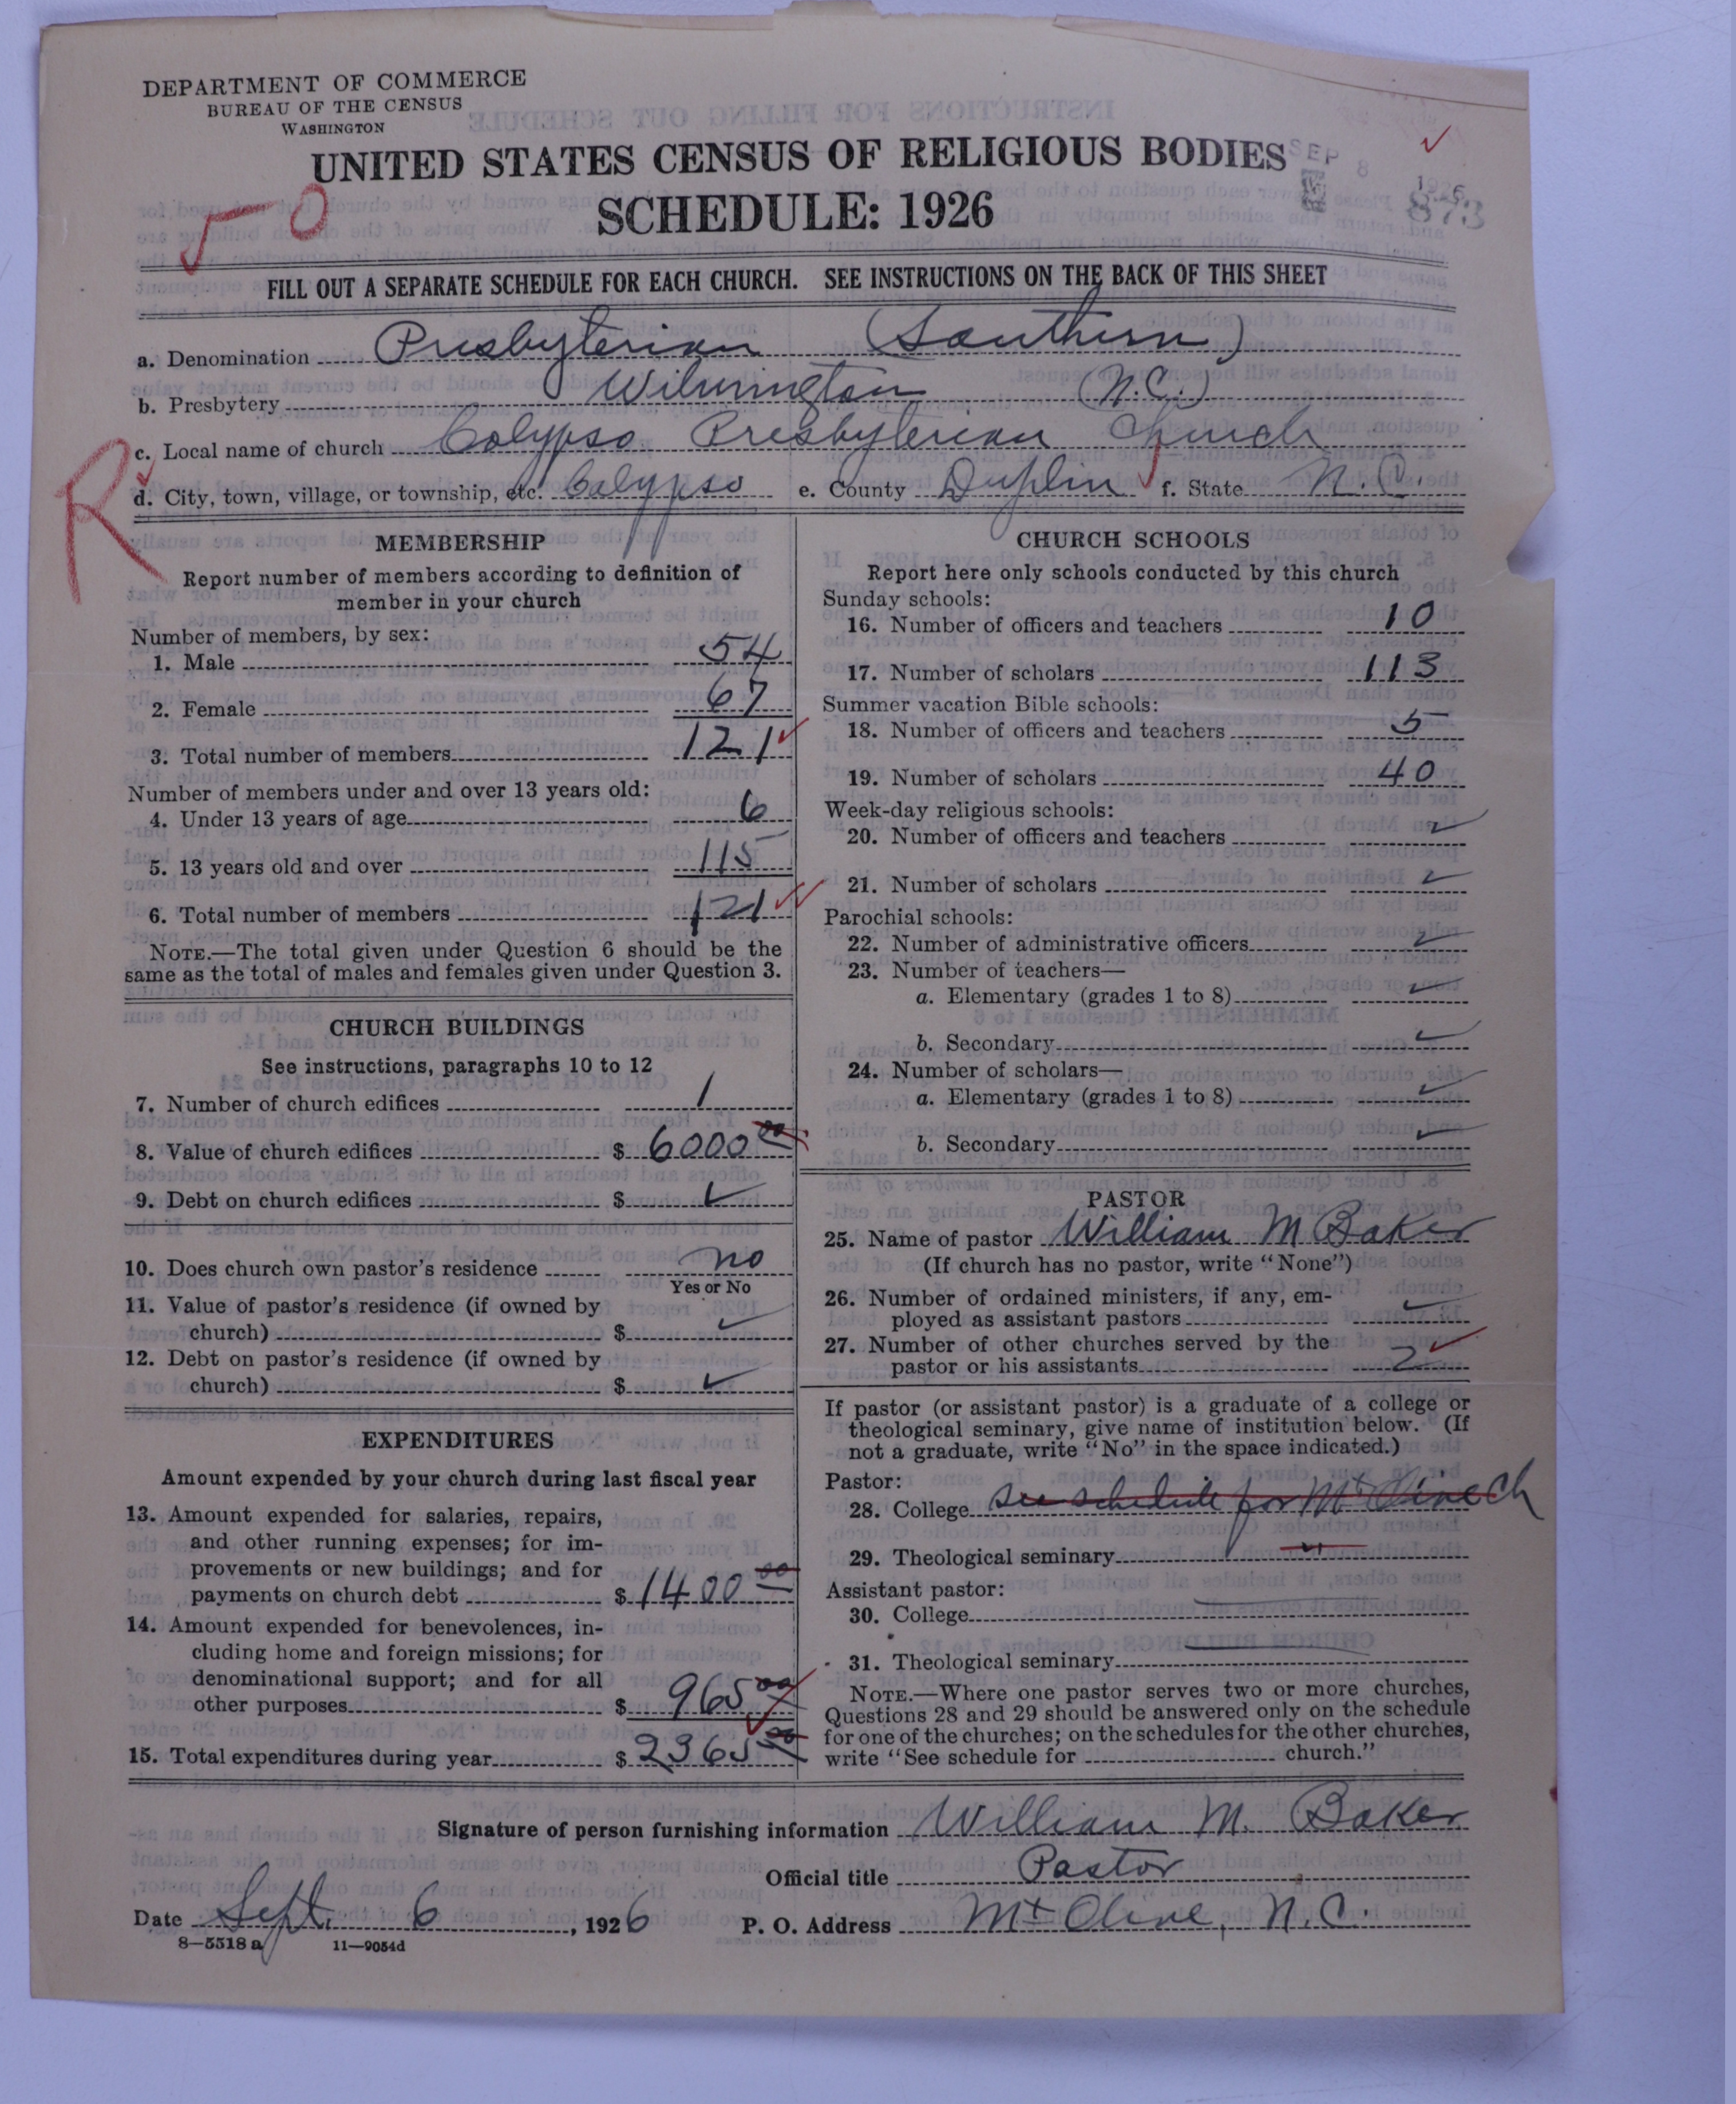 DEPARTMENT OF COMMERCE
BUREAU OF THE CENSUS
WASHINGTON
UNITED STATES CENSUS OF RELIGIOUS BODIES
SCHEDULE: 1926
SEP 8 1926
873
50
FILL OUT A SEPARATE SCHEDULE FOR EACH CHURCH. SEE INSTRUCTIONS ON THE BACK OF THIS SHEET
a. Denomination Presbyterian (Southern)
b. Presbytery Wilmington (N.C.)
c. Local name of church Calypso Presbyterian Church
R
d. City, town, village, or township, etc. Calypso e. County Duplin f. State N.C.
MEMBERSHIP
Report number of members according to definition of
member in your church
Number of members, by sex:
1. Male 54
2. Female 67
3. Total number of members 121
Number of members under and over 13 years old:
4. Under 13 years of age 6
5. 13 years old and over 115
6. Total number of members 121
NOTE.—The total given under Question 6 should be the
same as the total of males and females given under Question 3.
CHURCH BUILDINGS
See instructions, paragraphs 10 to 12
7. Number of church edifices 1
8. Value of church edifices $ 6000 00
9. Debt on church edifices $ ✓
10. Does church own pastor's residence no
Yes or No
11. Value of pastor's residence (if owned by
church) $ ✓
12. Debt on pastor's residence (if owned by
church) $ ✓
EXPENDITURES
Amount expended by your church during last fiscal year
13. Amount expended for salaries, repairs,
and other running expenses; for im-
provements or new buildings; and for
payments on church debt $ 1400 00
14. Amount expended for benevolences, in-
cluding home and foreign missions; for
denominational support; and for all
other purposes $ 965 00
15. Total expenditures during year $ 2365 00
CHURCH SCHOOLS
Report here only schools conducted by this church
Sunday schools:
16. Number of officers and teachers 10
17. Number of scholars 113
Summer vacation Bible schools:
18. Number of officers and teachers 5
19. Number of scholars 40
Week-day religious schools:
20. Number of officers and teachers ✓
21. Number of scholars ✓
Parochial schools:
22. Number of administrative officers ✓
23. Number of teachers—
a. Elementary (grades 1 to 8) ✓
b. Secondary ✓
24. Number of scholars—
a. Elementary (grades 1 to 8) ✓
b. Secondary ✓
PASTOR
25. Name of pastor William M Baker
(If church has no pastor, write "None")
26. Number of ordained ministers, if any, em-
ployed as assistant pastors ✓
27. Number of other churches served by the
pastor or his assistants 2
If pastor (or assistant pastor) is a graduate of a college or
theological seminary, give name of institution below. (If
not a graduate, write "No" in the space indicated.)
Pastor:
28. College See schedule for Mt Olive Ch
29. Theological seminary "
Assistant pastor:
30. College
31. Theological seminary
NOTE.—Where one pastor serves two or more churches,
Questions 28 and 29 should be answered only on the schedule
for one of the churches; on the schedules for the other churches,
write "See schedule for church."
Signature of person furnishing information William M. Baker
Official title Pastor
Date Sept. 6, 1926 P. O. Address Mt Olive, N.C.
8—5518 a 11—9054d